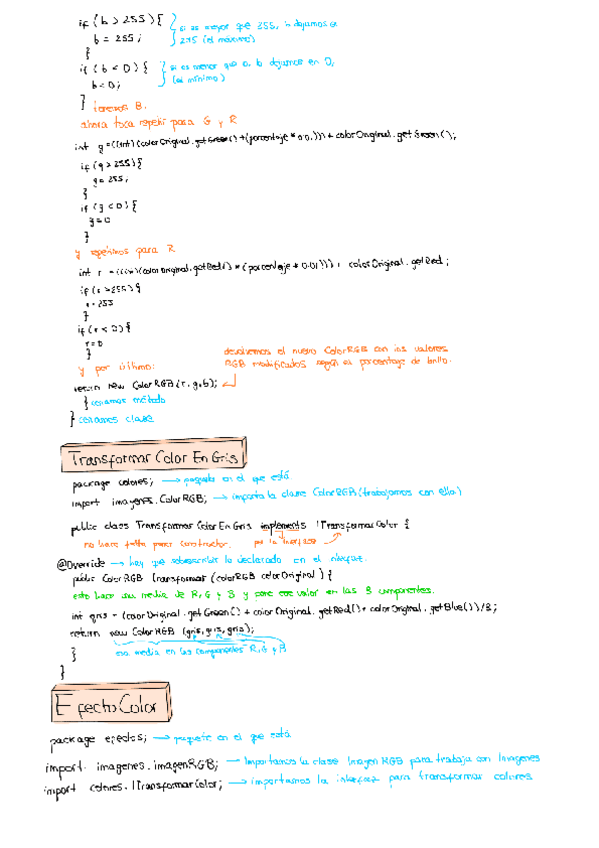 if (b > 255) {
si es mayor que 255, b dejamos en
b = 255;
255 (el máximo)
}
if (b < 0) {
si es menor que 0, b dejamos en 0,
(el mínimo)
b = 0;
}
tenemos B.
ahora toca repetir para G y R
int g = ((int) (colorOriginal.getGreen() * (porcentaje * 0.01))) + colorOriginal.getGreen();
if (g > 255) {
g = 255;
}
if (g < 0) {
g = 0
}
y repetimos para R
int r = ((int) (colorOriginal.getRed() * (porcentaje * 0.01))) + colorOriginal.getRed;
if (r > 255) {
r = 255
}
if (r < 0) {
r = 0
}
devolvemos el nuevo ColorRGB con los valores
y por último:
RGB modificados según el porcentaje de brillo.
return new ColorRGB (r, g, b);
} cerramos método
} cerramos clase
Transformar Color En Gris
package colores; → paquete en el que está
import imagenes.ColorRGB; → importa la clase ColorRGB (trabajamos con ella)
public class TransformarColorEnGris implements ITransformarColor {
no hace falta poner constructor.
por la interfaz
@Override → hay que sobrescribir lo declarado en el
public ColorRGB transformar (colorRGB colorOriginal) {
esto hace su media de R, G y B y pone ese valor en las 3 componentes.
int gris = (colorOriginal.getGreen() + colorOriginal.getRed() + colorOriginal.getBlue()) / 3;
return new ColorRGB (gris, gris, gris);
}
esa media en las componentes R, G y B
}
Efecto Color
package efectos; → paquete en el que está
import imagenes.imagenRGB; → Importamos la clase Imagen RGB para trabajar con Imagenes
import colores.ITransformarColor; → importamos la interfaz para transformar colores